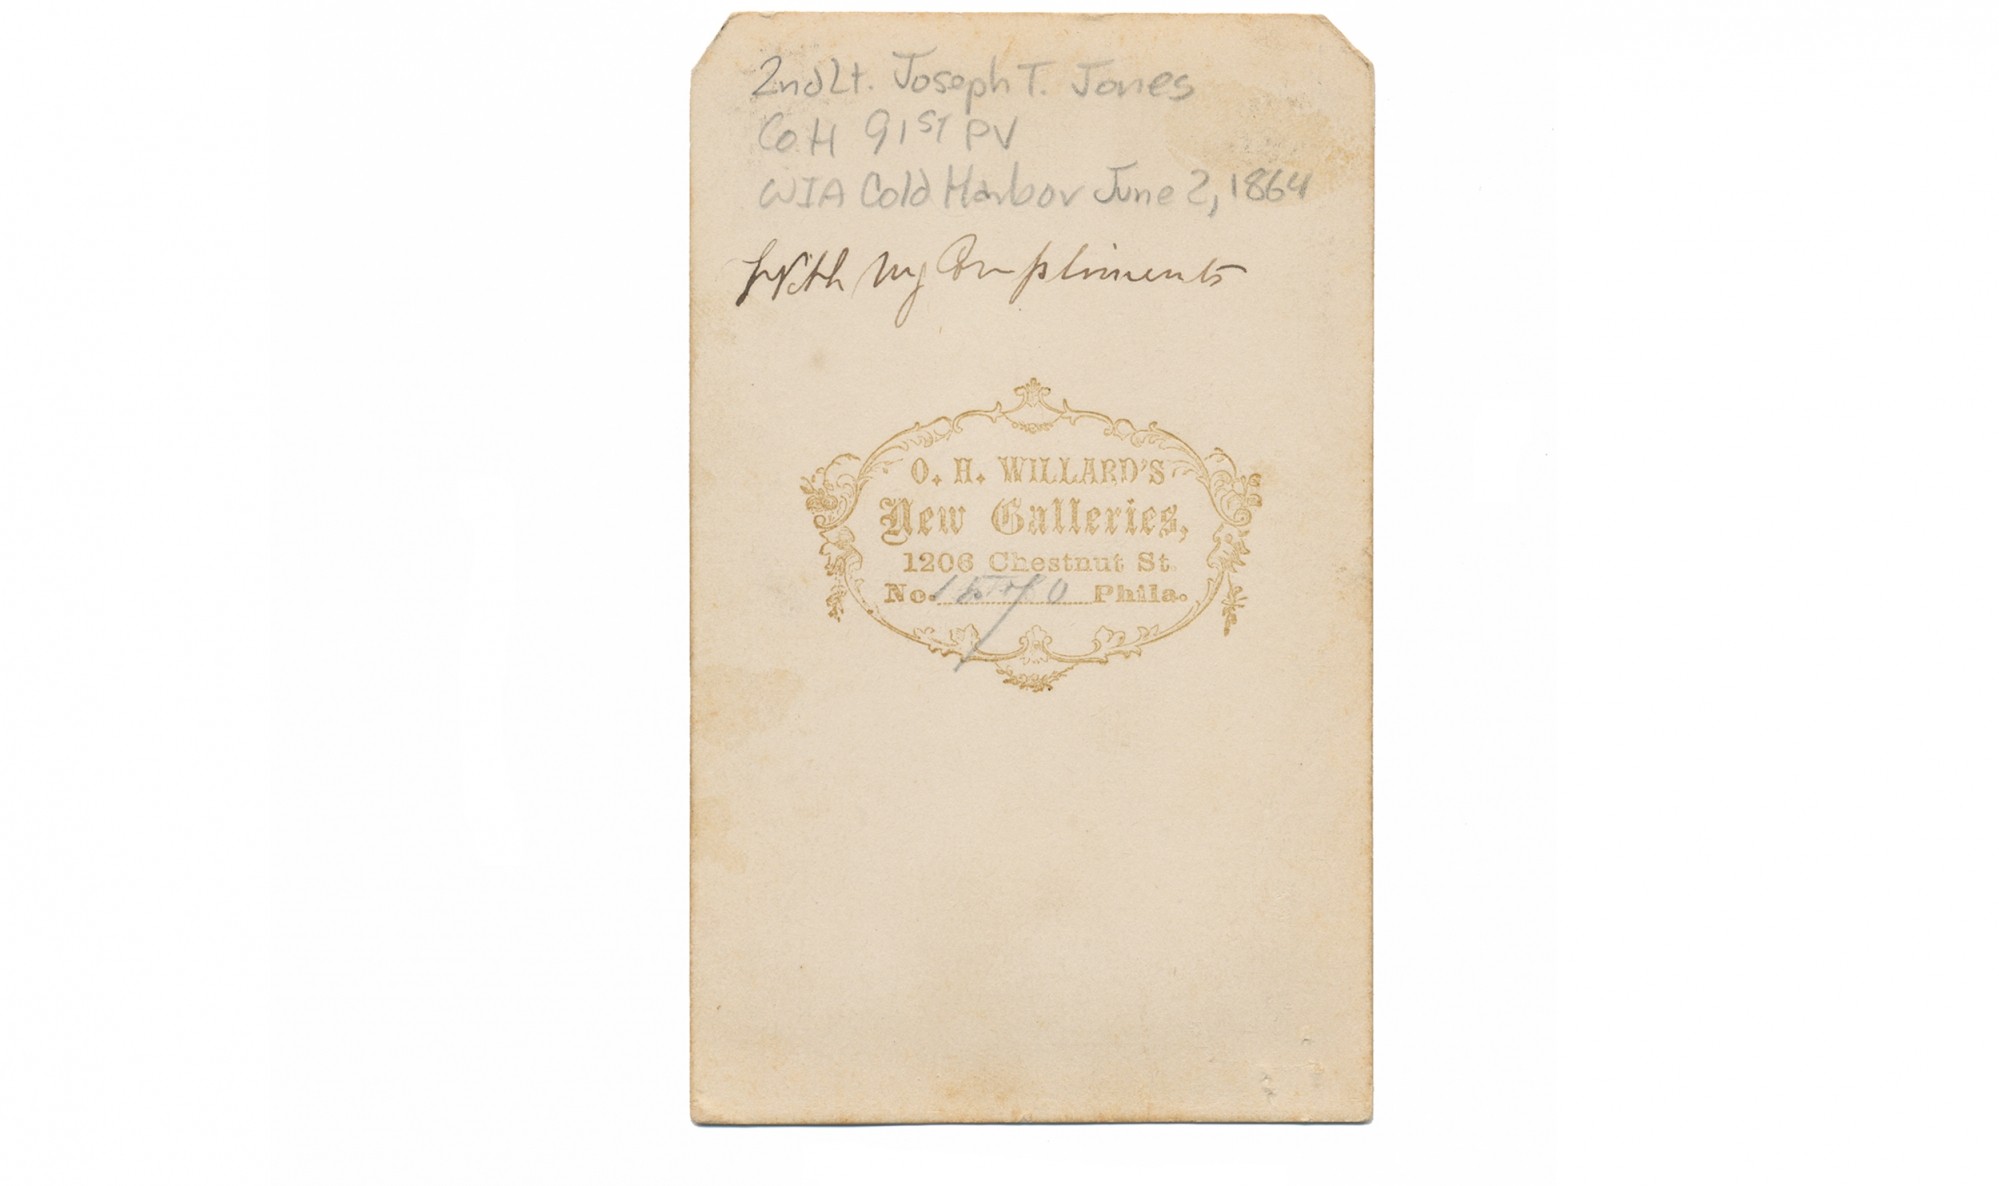 2nd Lt. Joseph T. Jones
Co H 91ST PV
WIA Cold Harbor June 2, 1864
With My Compliments
O. H. WILLARD'S
New Galleries,
1206 Chestnut St.
No. 1570 Phila.